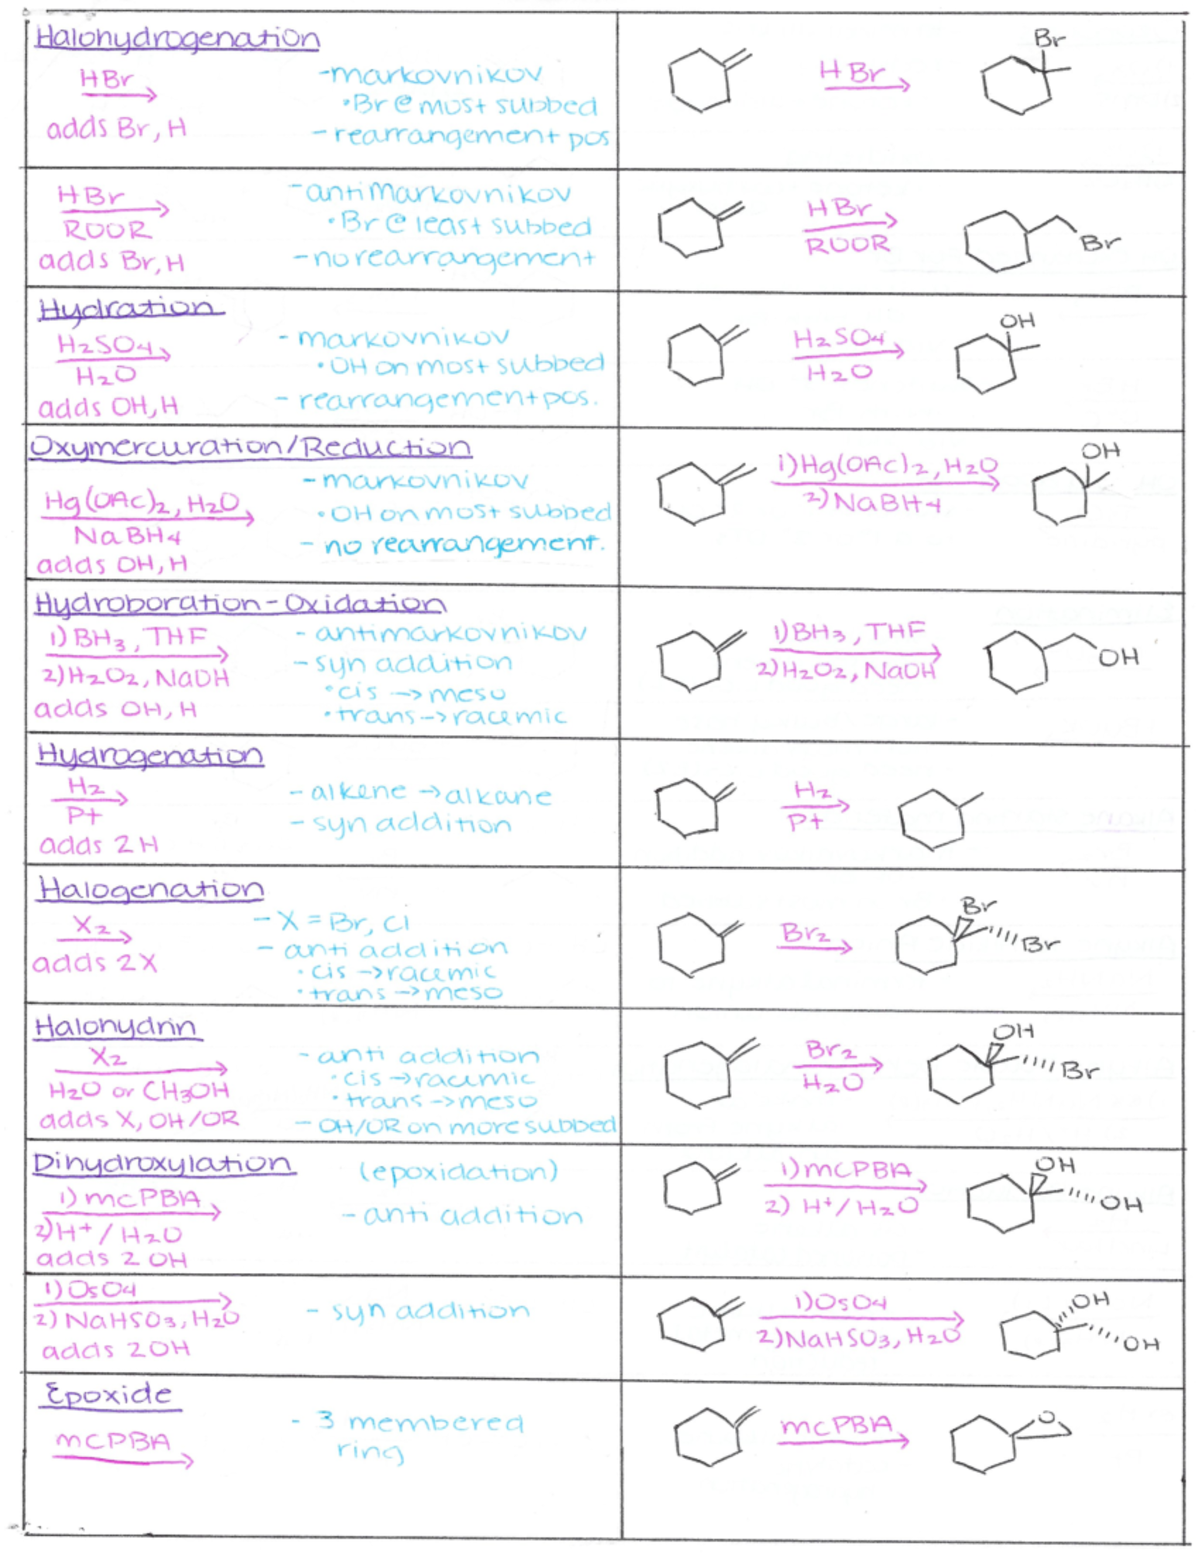 Halohydrogenation
HBr
adds Br, H
-markovnikov
•Br@most subbed
-rearrangement pos
HBr
Br
HBr
ROOR
adds Br, H
-antimarkovnikov
•Br@least subbed
-no rearrangement
HBr
ROOR
Br
Hydration
H2SO4
H2O
adds OH, H
-markovnikov
•OH on most subbed
-rearrangement pos.
H2SO4
H2O
OH
Oxymercuration/Reduction
Hg(OAc)2, H2O
NaBH4
adds OH, H
-markovnikov
•OH on most subbed
-no rearrangement.
1)Hg(OAc)2, H2O
2)NaBH4
OH
Hydroboration-Oxidation
1)BH3, THF
2)H2O2, NaOH
adds OH, H
-antimarkovnikov
-syn addition
•cis→meso
•trans→racemic
1)BH3, THF
2)H2O2, NaOH
OH
Hydrogenation
H2
Pt
adds 2H
-alkene→alkane
-syn addition
H2
Pt
Halogenation
X2
adds 2X
-X = Br, Cl
-anti addition
•cis→racemic
•trans→meso
Br2
Br
Br
Halohydrin
X2
H2O or CH3OH
adds X, OH/OR
-anti addition
•cis→racemic
•trans→meso
-OH/OR on more subbed
Br2
H2O
OH
Br
Dihydroxylation
1) mCPBA
2)H+/H2O
adds 2 OH
(epoxidation)
-anti addition
1)mCPBA
2) H+/H2O
OH
OH
1)OsO4
2)NaHSO3, H2O
adds 2OH
-syn addition
1)OsO4
2)NaHSO3, H2O
OH
OH
Epoxide
mCPBA
-3 membered
ring
mCPBA
O